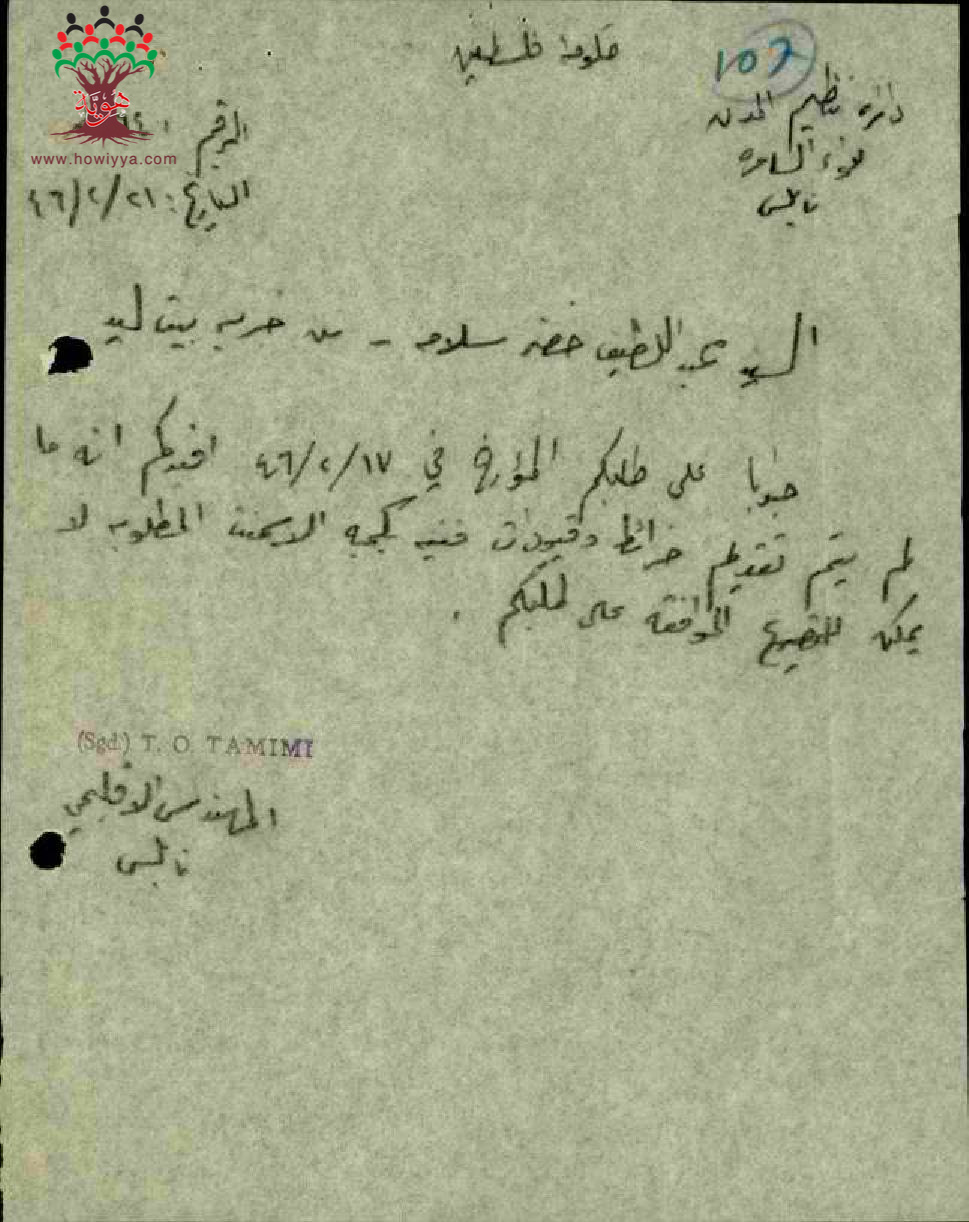 حكومة فلسطين
107
دائرة تنظيم المدن
لواء السامرة
نابلس
هوية
www.howiyya.com
الرقم
التاريخ: ٢١/٢/٤٦
السيد عبد اللطيف خضر سلامه - من خربه بيت ليد
جوابا على طلبكم المؤرخ في ١٧/٢/٤٦ افيدكم انه ما
لم يتم تقديم خرائط فنيه بكميه الاسمنت المطلوبه لا
يمكن الموافقه على طلبكم .
(Sgd.) T. O. TAMIMI
المهندس الاقليمي
نابلس